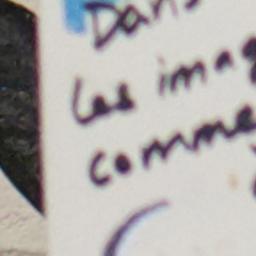 Dans
les imag
comme